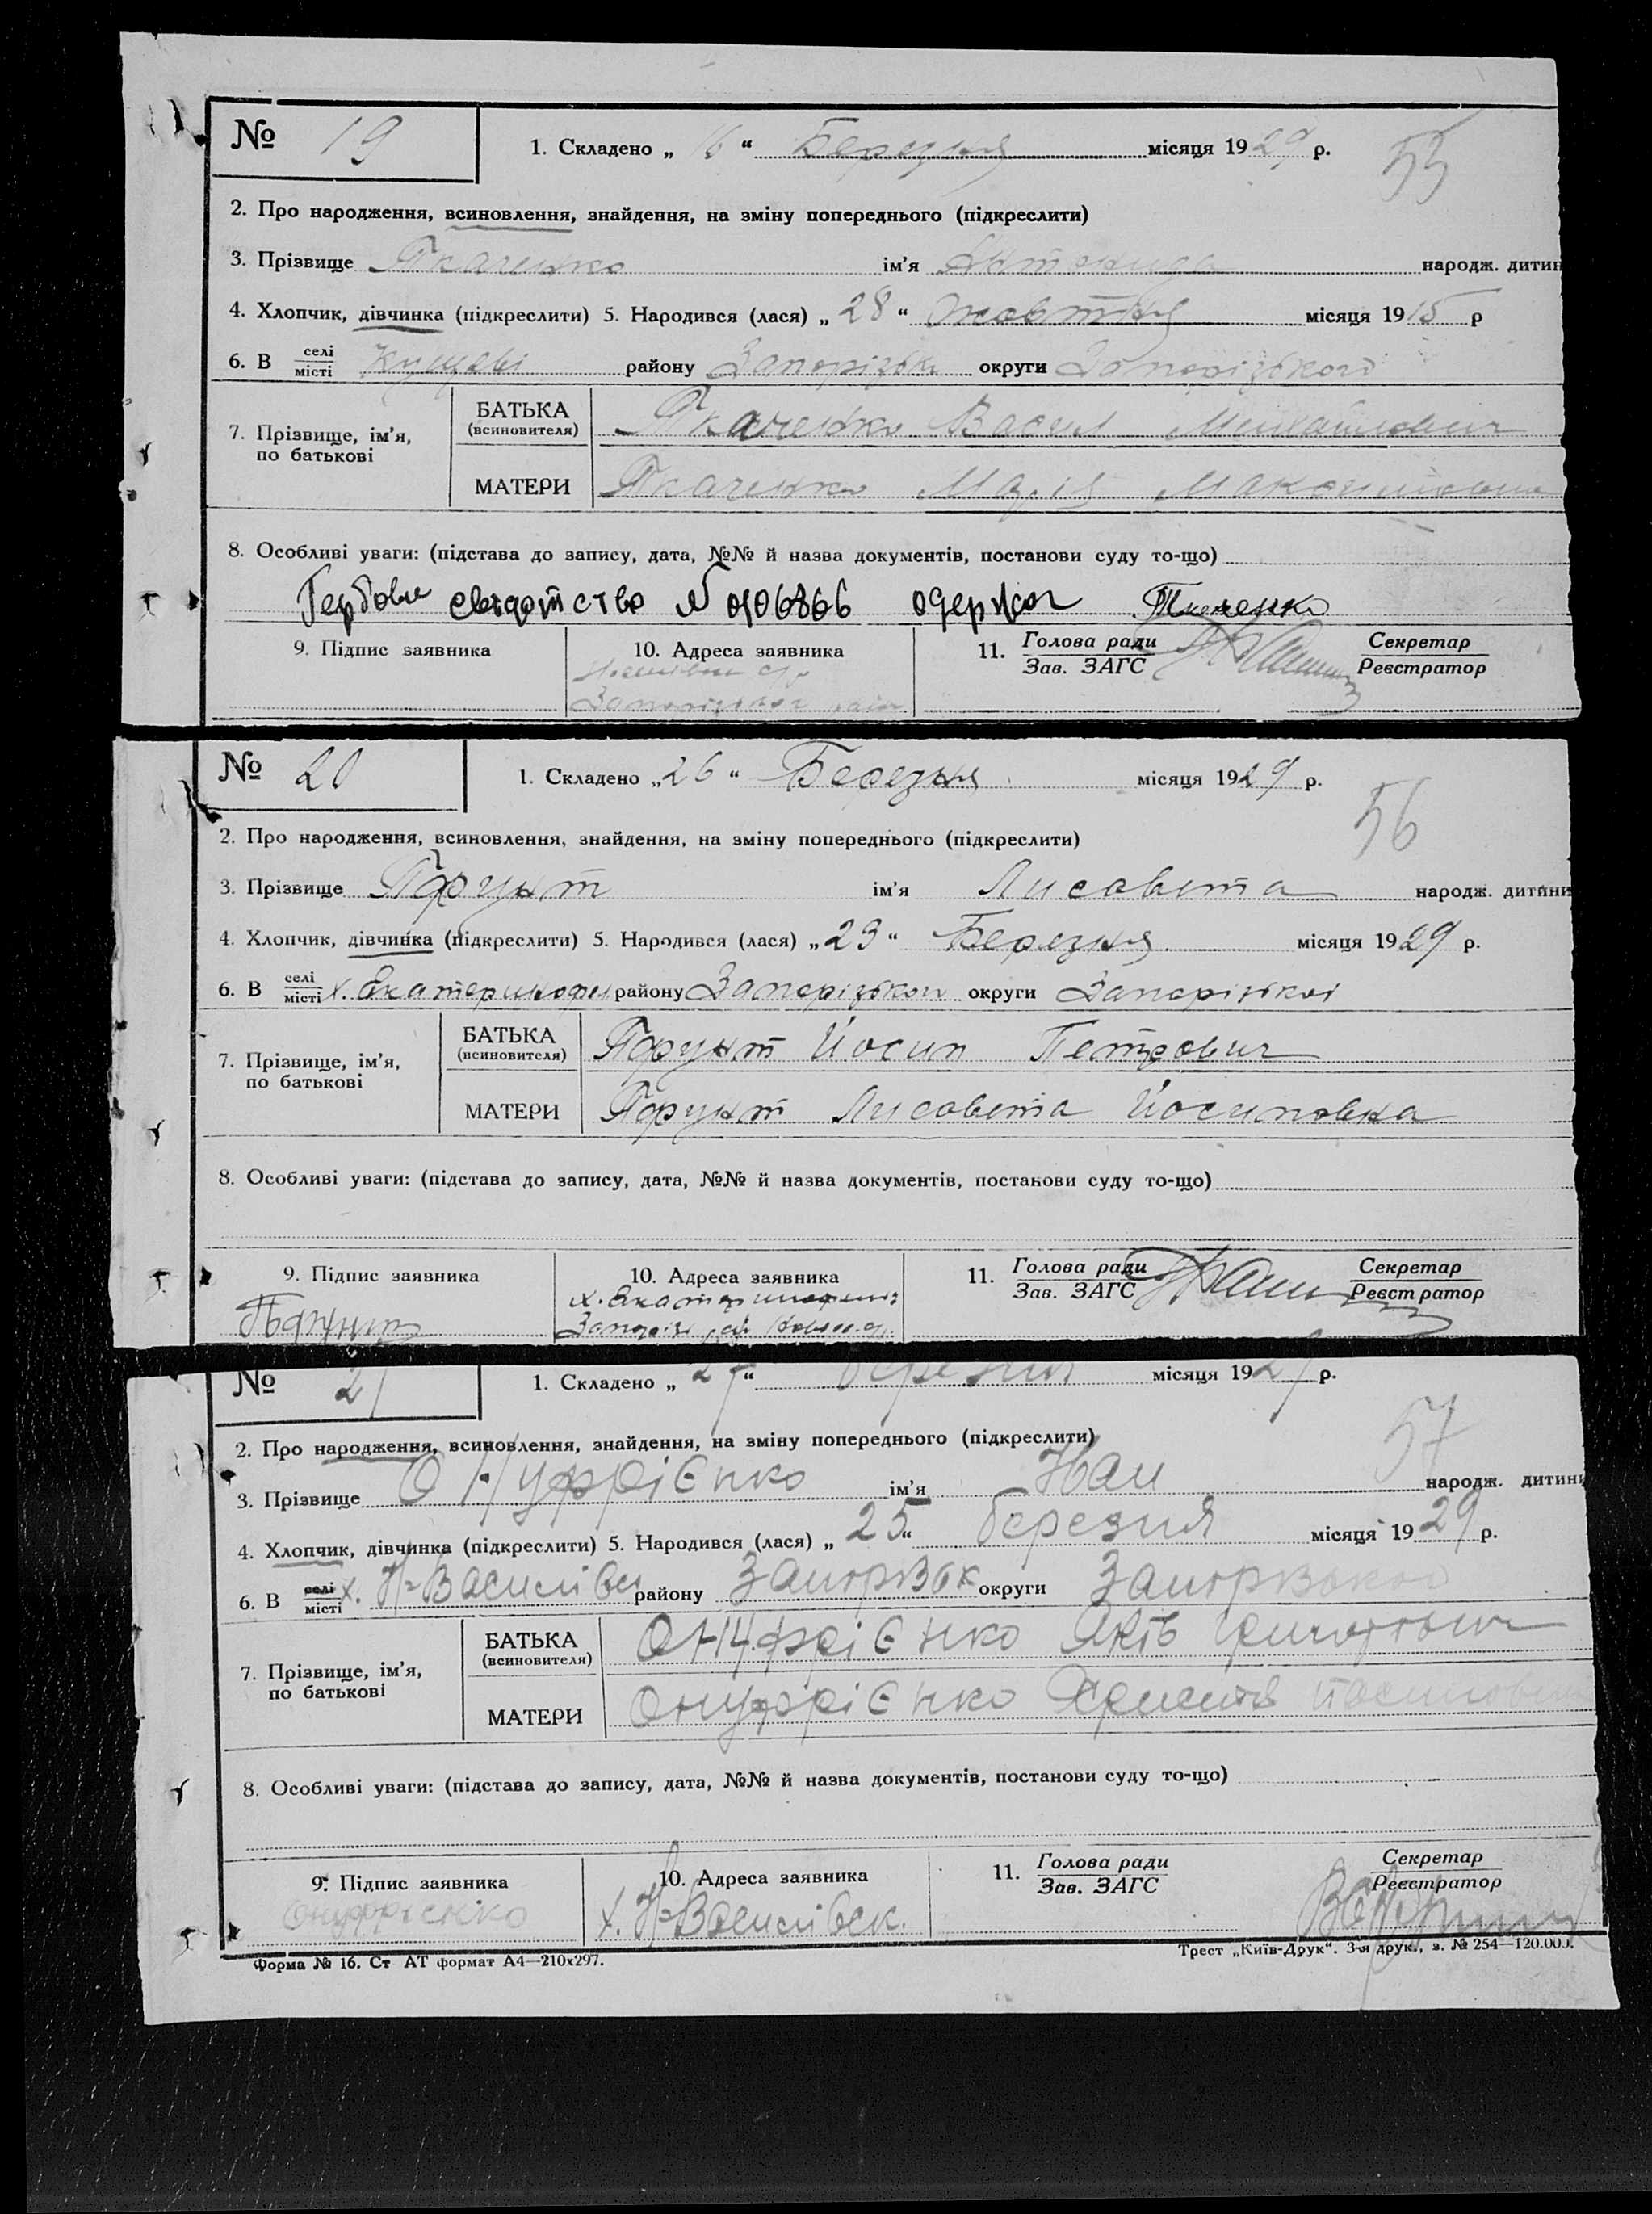 № 19 1. Складено „ 16 “ Березня місяця 1929 р. 55
2. Про народження, всиновлення, знайдення, на зміну попереднього (підкреслити)
3. Прізвище Ткаченко ім'я народж. дитин
4. Хлопчик, дівчинка (підкреслити) 5. Народився (лася) „ 28 “ Жовтня місяця 1915 р
6. В селі місті Кущеві району Запорізьк округи Запорізького
7. Прізвище, ім'я, по батькові БАТЬКА (всиновителя) Ткаченко Василь Михайлович
МАТЕРИ Ткаченко Марія
8. Особливі уваги: (підстава до запису, дата, №№ й назва документів, постанови суду то-що)
Гербове свідотство № 0106866 одержав Ткаченко
9. Підпис заявника 10. Адреса заявника 11. Голова ради Зав. ЗАГС Секретар Реєстратор
№ 20 1. Складено „26 “ Березня місяця 1929 р. 56
2. Про народження, всиновлення, знайдення, на зміну попереднього (підкреслити)
3. Прізвище Пфунт ім'я Лисавета народж. дитини
4. Хлопчик, дівчинка (підкреслити) 5. Народився (лася) „23“ Березня місяця 1929 р.
6. В селі місті х. Екатеринофел району Запорізького округи Запорізької
7. Прізвище, ім'я, по батькові БАТЬКА (всиновителя) Пфунт Йосип Петрович
МАТЕРИ Пфунт Лисавета Йосиповна
8. Особливі уваги: (підстава до запису, дата, №№ й назва документів, постанови суду то-що)
9. Підпис заявника 10. Адреса заявника 11. Голова ради Зав. ЗАГС Секретар Реєстратор
Пфунт
№ 21 1. Складено „ 27“ березня місяця 1929 р. 57
2. Про народження, всиновлення, знайдення, на зміну попереднього (підкреслити)
3. Прізвище Онуфрієнко ім'я Іван народж. дитини
4. Хлопчик, дівчинка (підкреслити) 5. Народився (лася) „ 25“ березня місяця 1929 р.
6. В селі місті х. Н-Василівки району Запорізьк округи
7. Прізвище, ім'я, по батькові БАТЬКА (всиновителя) Онуфрієнко Яків Григорович
МАТЕРИ Онуфрієнко Йосиповна
8. Особливі уваги: (підстава до запису, дата, №№ й назва документів, постанови суду то-що)
9. Підпис заявника 10. Адреса заявника 11. Голова ради Зав. ЗАГС Секретар Реєстратор
Онуфрієнко х. Н-Василівск.
Форма № 16. Ст АТ формат А4—210х297. Трест „Київ-Друк“. 3-я друк., з. № 254—120.000.